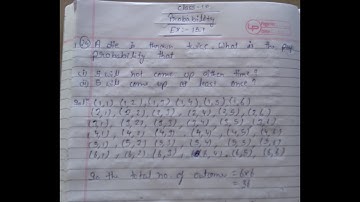 Class-10
Probability
Ex:- 15.1
A die is thrown twice. What is the
probability that
(i) 5 will not come up either time?
(ii) 5 will come up at least once?
(1,1) (1,2) (1,3) (1,4) (1,5) (1,6)
(2,1), (2,2), (2,3), (2,4), (2,5), (2,6)
(3,1), (3,2), (3,3), (3,4), (3,5), (3,6)
(4,1), (4,2), (4,3), (4,4), (4,5), (4,6)
(5,1), (5,2), (5,3), (5,4), (5,5), (5,6)
(6,1), (6,2), (6,3), (6,4), (6,5), (6,6)
So the total no. of outcomes = 6×6
= 36